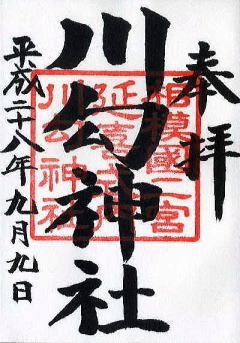 奉拝
川勾神社
相模國二宮
延喜式内
川勾神社
平成二十八年九月九日